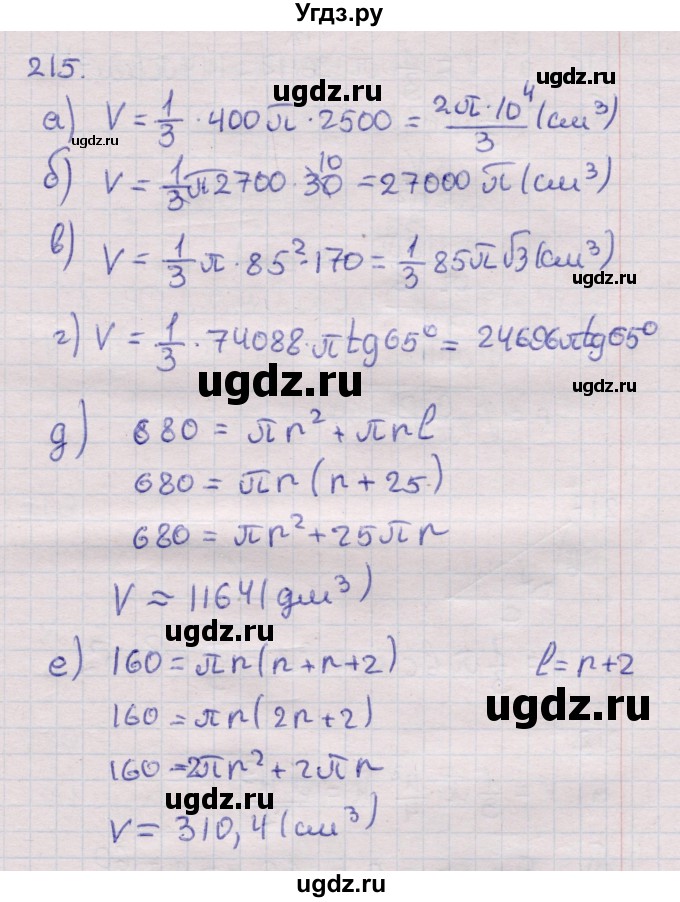 Угдз.ру
215.
ugdz.ru
а) V = 1/3 · 400π · 2500 = 2π·10⁴/3 (см³)
ugdz.ru
ugdz.ru
10
б) V = 1/3 π 2700 · 30 = 27000 π (см³)
в) V = 1/3 π · 85² · 170 = 1/3 85π√3 (см³)
ugdz.ru
г) V = 1/3 · 74088 · π tg 65° = 24696π tg 65°
ugdz.ru
ugdz.ru
д) 680 = πr² + πrl
680 = πr (r + 25)
680 = πr² + 25πr
V ≈ 1164 (дм³)
ugdz.ru
е) 160 = πr(r + r + 2) l = r + 2
ugdz.ru
160 = πr(2r + 2)
160 = 2πr² + 2πr
ugdz.ru
V = 310,4 (см³)
ugdz.ru